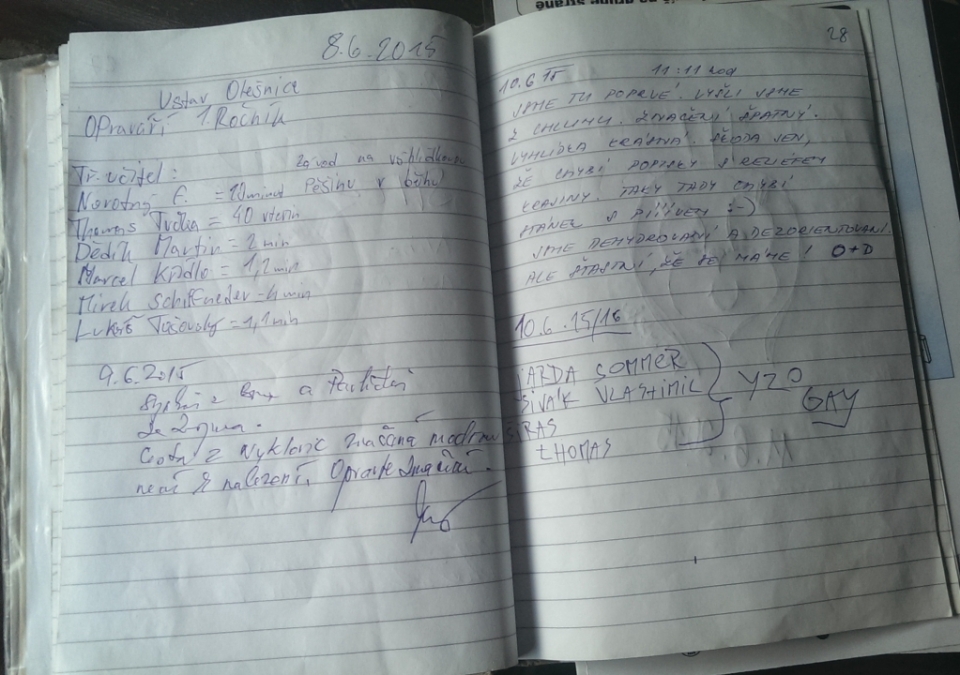 8.6.2015
Ustav Olešnice
Opraváři 1.Ročník
Tř. učitel: závod na vyhlídkovou
Novotný F. = 10minut Pěšinu v běhu
Thomas Tvička = 40 vteřin
Dědík Martin = 2 min
Marcel Křídlo = 1,2 min
Mirek Schiffneder - 4 min
Lukáš = 1,1 min
9.6.2015
a
Ze Znojma.
Cesta z Vyklavic značena modrou
není k nalezení. Opravte značení.
28
10.6.15 11:11 hod
JSME TU POPRVÉ. VYŠLI JSME
Z CHLUMU. ZNAČENÍ ŠPATNÝ.
VYHLÍDKA KRÁSNÁ. ŠKODA JEN,
ŽE CHYBÍ POPISKY S RELIÉFEM
KRAJINY. TAKY TADY CHYBÍ
STÁNEK S PÍÍÍVEM :-)
JSME DEHYDROVANÍ A DEZORIENTOVANÍ
ALE ŠŤASTNÍ, ŽE SE MÁME! O+D
10.6.15/16
JARDA SOMMER
SIVÁK VLASTIMIL YZO
STRAS GAY
tHOMAS